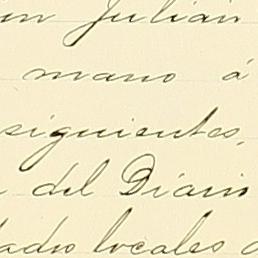 un Julián
mano á
siguientes,
del Diario
tados locales